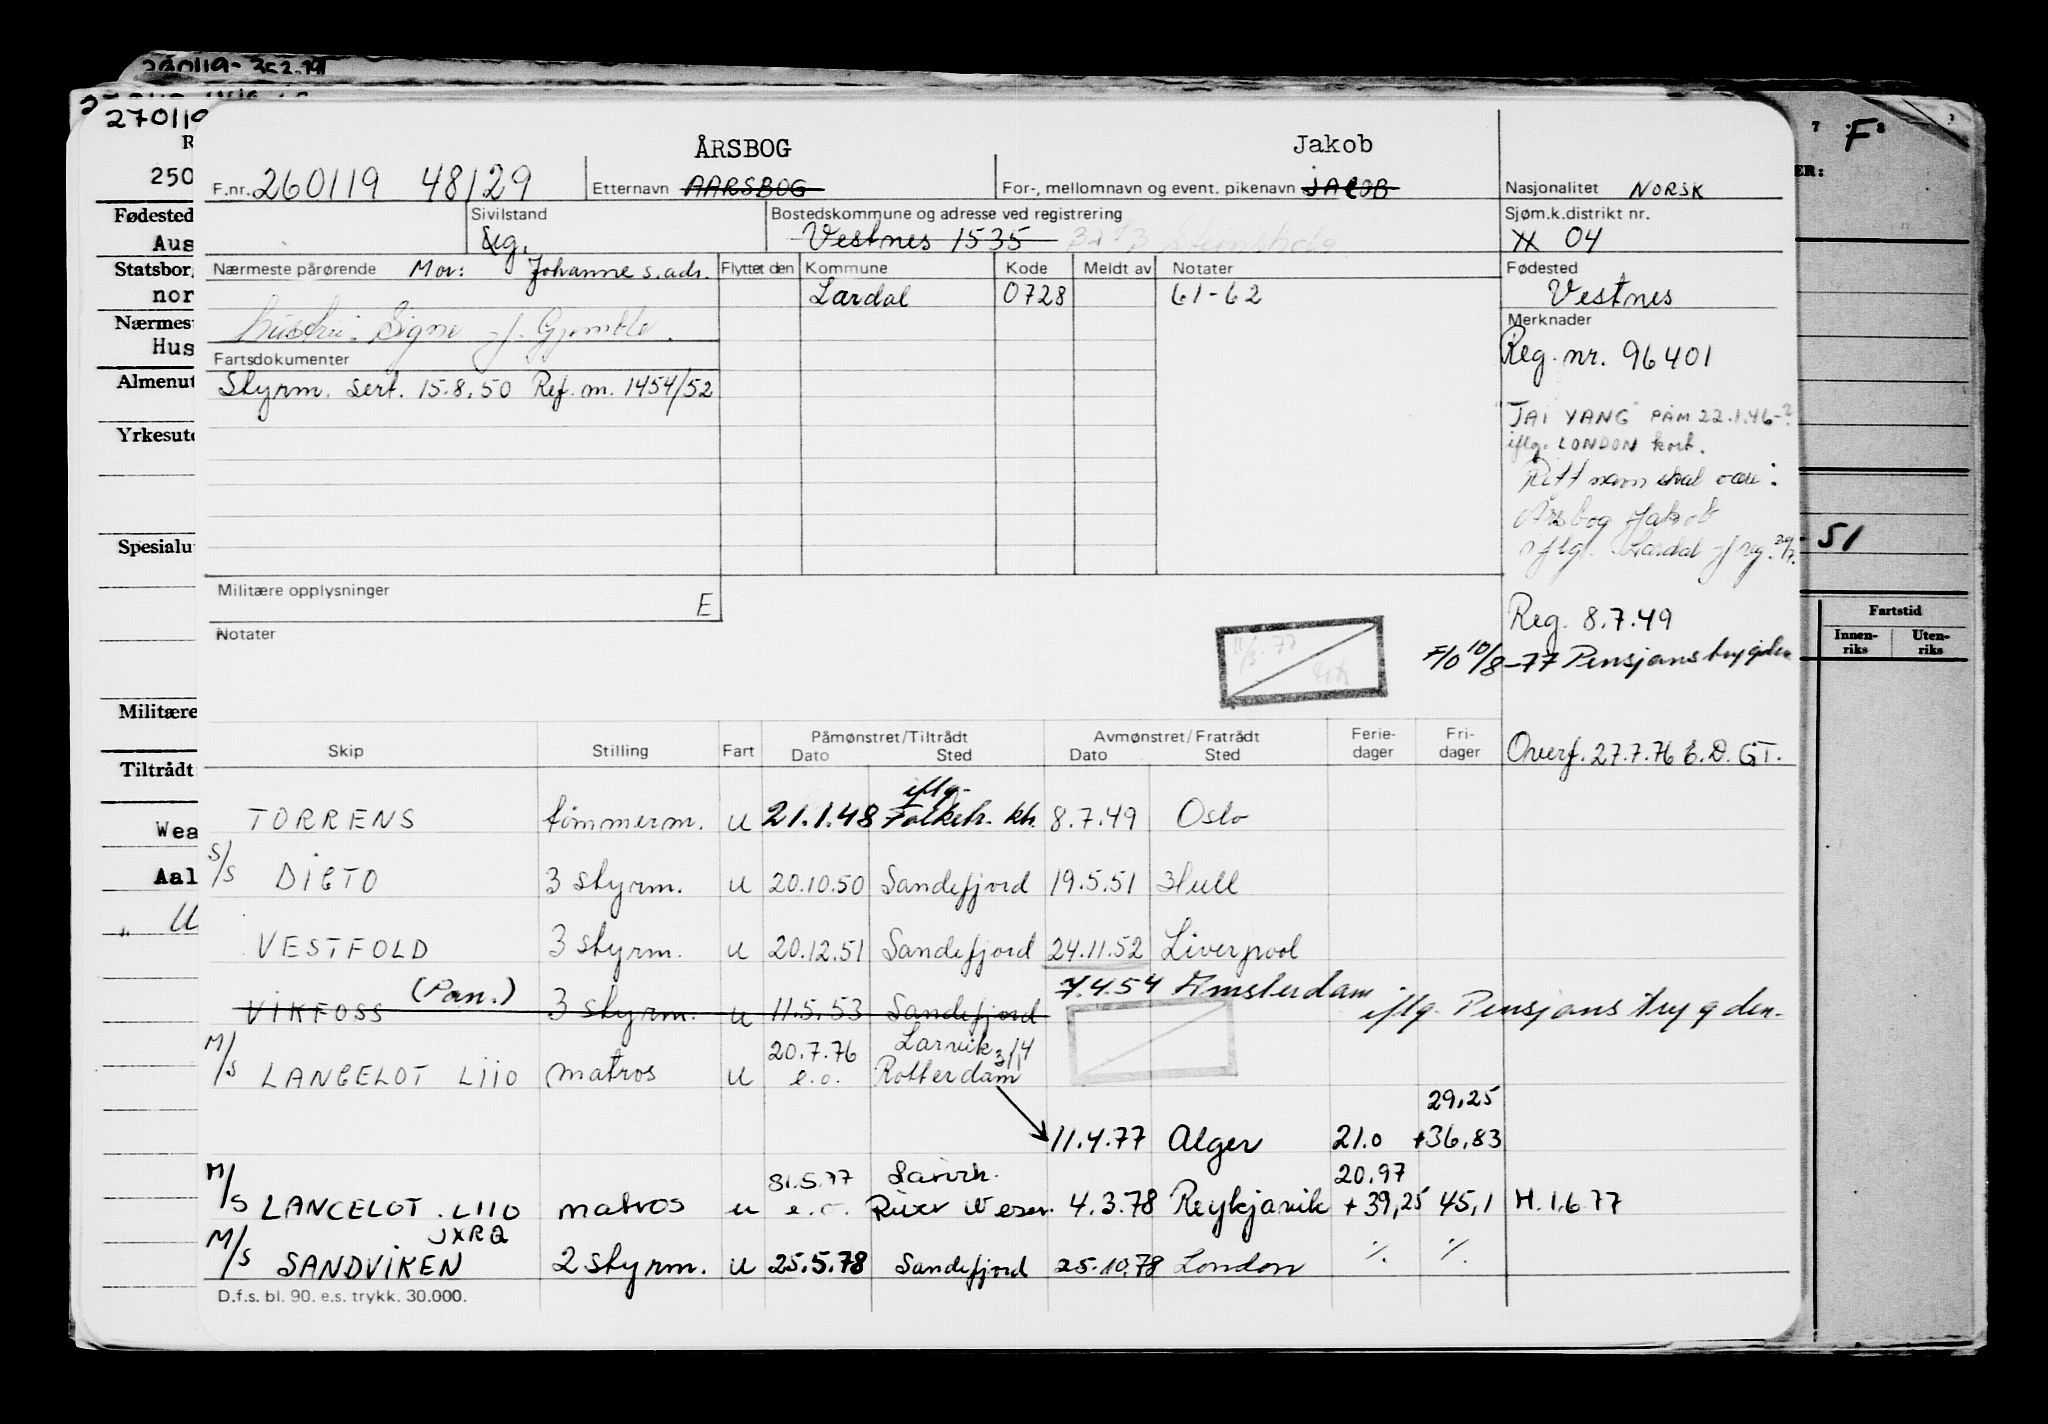 260119-352.79
270119
250
Fødested
Aus
Statsbor
nor
Nærmest
Hus
Almenut
Yrkesut
Spesialu
Militære
Tiltrådt
Wea
Aal
" U
7 8 F
ER:
51
Fartstid
Innen-riks Uten-riks
ÅRSBOG Jakob
F.nr. 260119 48129 Etternavn AARSBOG For-, mellomnavn og event. pikenavn JACOB Nasjonalitet NORSK
Sivilstand Ug. Bostedskommune og adresse ved registrering Vestnes 1535 3273 Steinsholt Sjøm.k.distrikt nr. XX 04
Nærmeste pårørende Mor: Johanne s.adr. Flyttet den Kommune Kode Meldt av Notater Fødested
Lardal 0728 61-62 Vestnes
hustru: Signe f. Gjemble. Merknader
Fartsdokumenter Reg. nr. 96401
Styrm. sert. 15.8.50 Ref. m. 1454/52
"JAI YANG" PÅM 22.1.46-?
iflg. LONDON kort.
Rett navn skal være:
Årsbog Jakob
iflg. Lardal f.reg.
Militære opplysninger E
Notater
Reg. 8.7.49
11/8-77
F/O 10/8-77 Pensjonstrygden
Skip Stilling Fart Påmønstret/Tiltrådt Dato Sted Avmønstret/Fratrådt Dato Sted Ferie-dager Fri-dager Overf. 27.7.76 E.D. GT.
TORRENS tømmerm. u 21.1.48 iflg. Folketr. kt. 8.7.49 Oslo
S/S DIGTO 3 styrm. u 20.10.50 Sandefjord 19.5.51 Hull
VESTFOLD 3 styrm. u 20.12.51 Sandefjord 24.11.52 Liverpool
VIKFOSS (Pan.) 3 styrm. u 11.5.53 Sandefjord 7.4.54 Amsterdam iflg. Pensjonstrygden.
M/S LANCELOT LIIO matros u 20.7.76 e.o. Larvik 3/4 Rotterdam
29,25
11.4.77 Alger 21.0 +36,83
M/S LANCELOT. LIIO matros u 31.5.77 e.o. Larvik. River Weser. 4.3.78 Reykjavik 20,97 + 39,25 45,1 H. 1.6.77
M/S SANDVIKEN JXRQ 2 styrm. u 25.5.78 Sandefjord 25.10.78 London ./. ./.
D.f.s. bl. 90. e.s. trykk. 30.000.